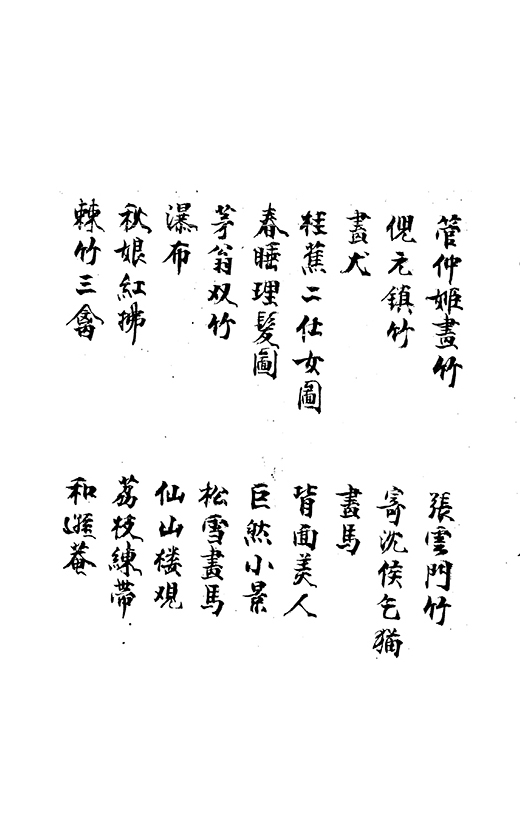 管仲姬畫竹
張雲門竹
倪元鎮竹
寄沈侯乞猫
畫犬
畫馬
桂蕉二仕女圖
背面美人
春睡理髮圖
巨然小景
茅翁双竹
松雪畫馬
瀑布
仙山楼观
秋娘紅拂
荔枝練帶
棘竹三禽
和遜菴